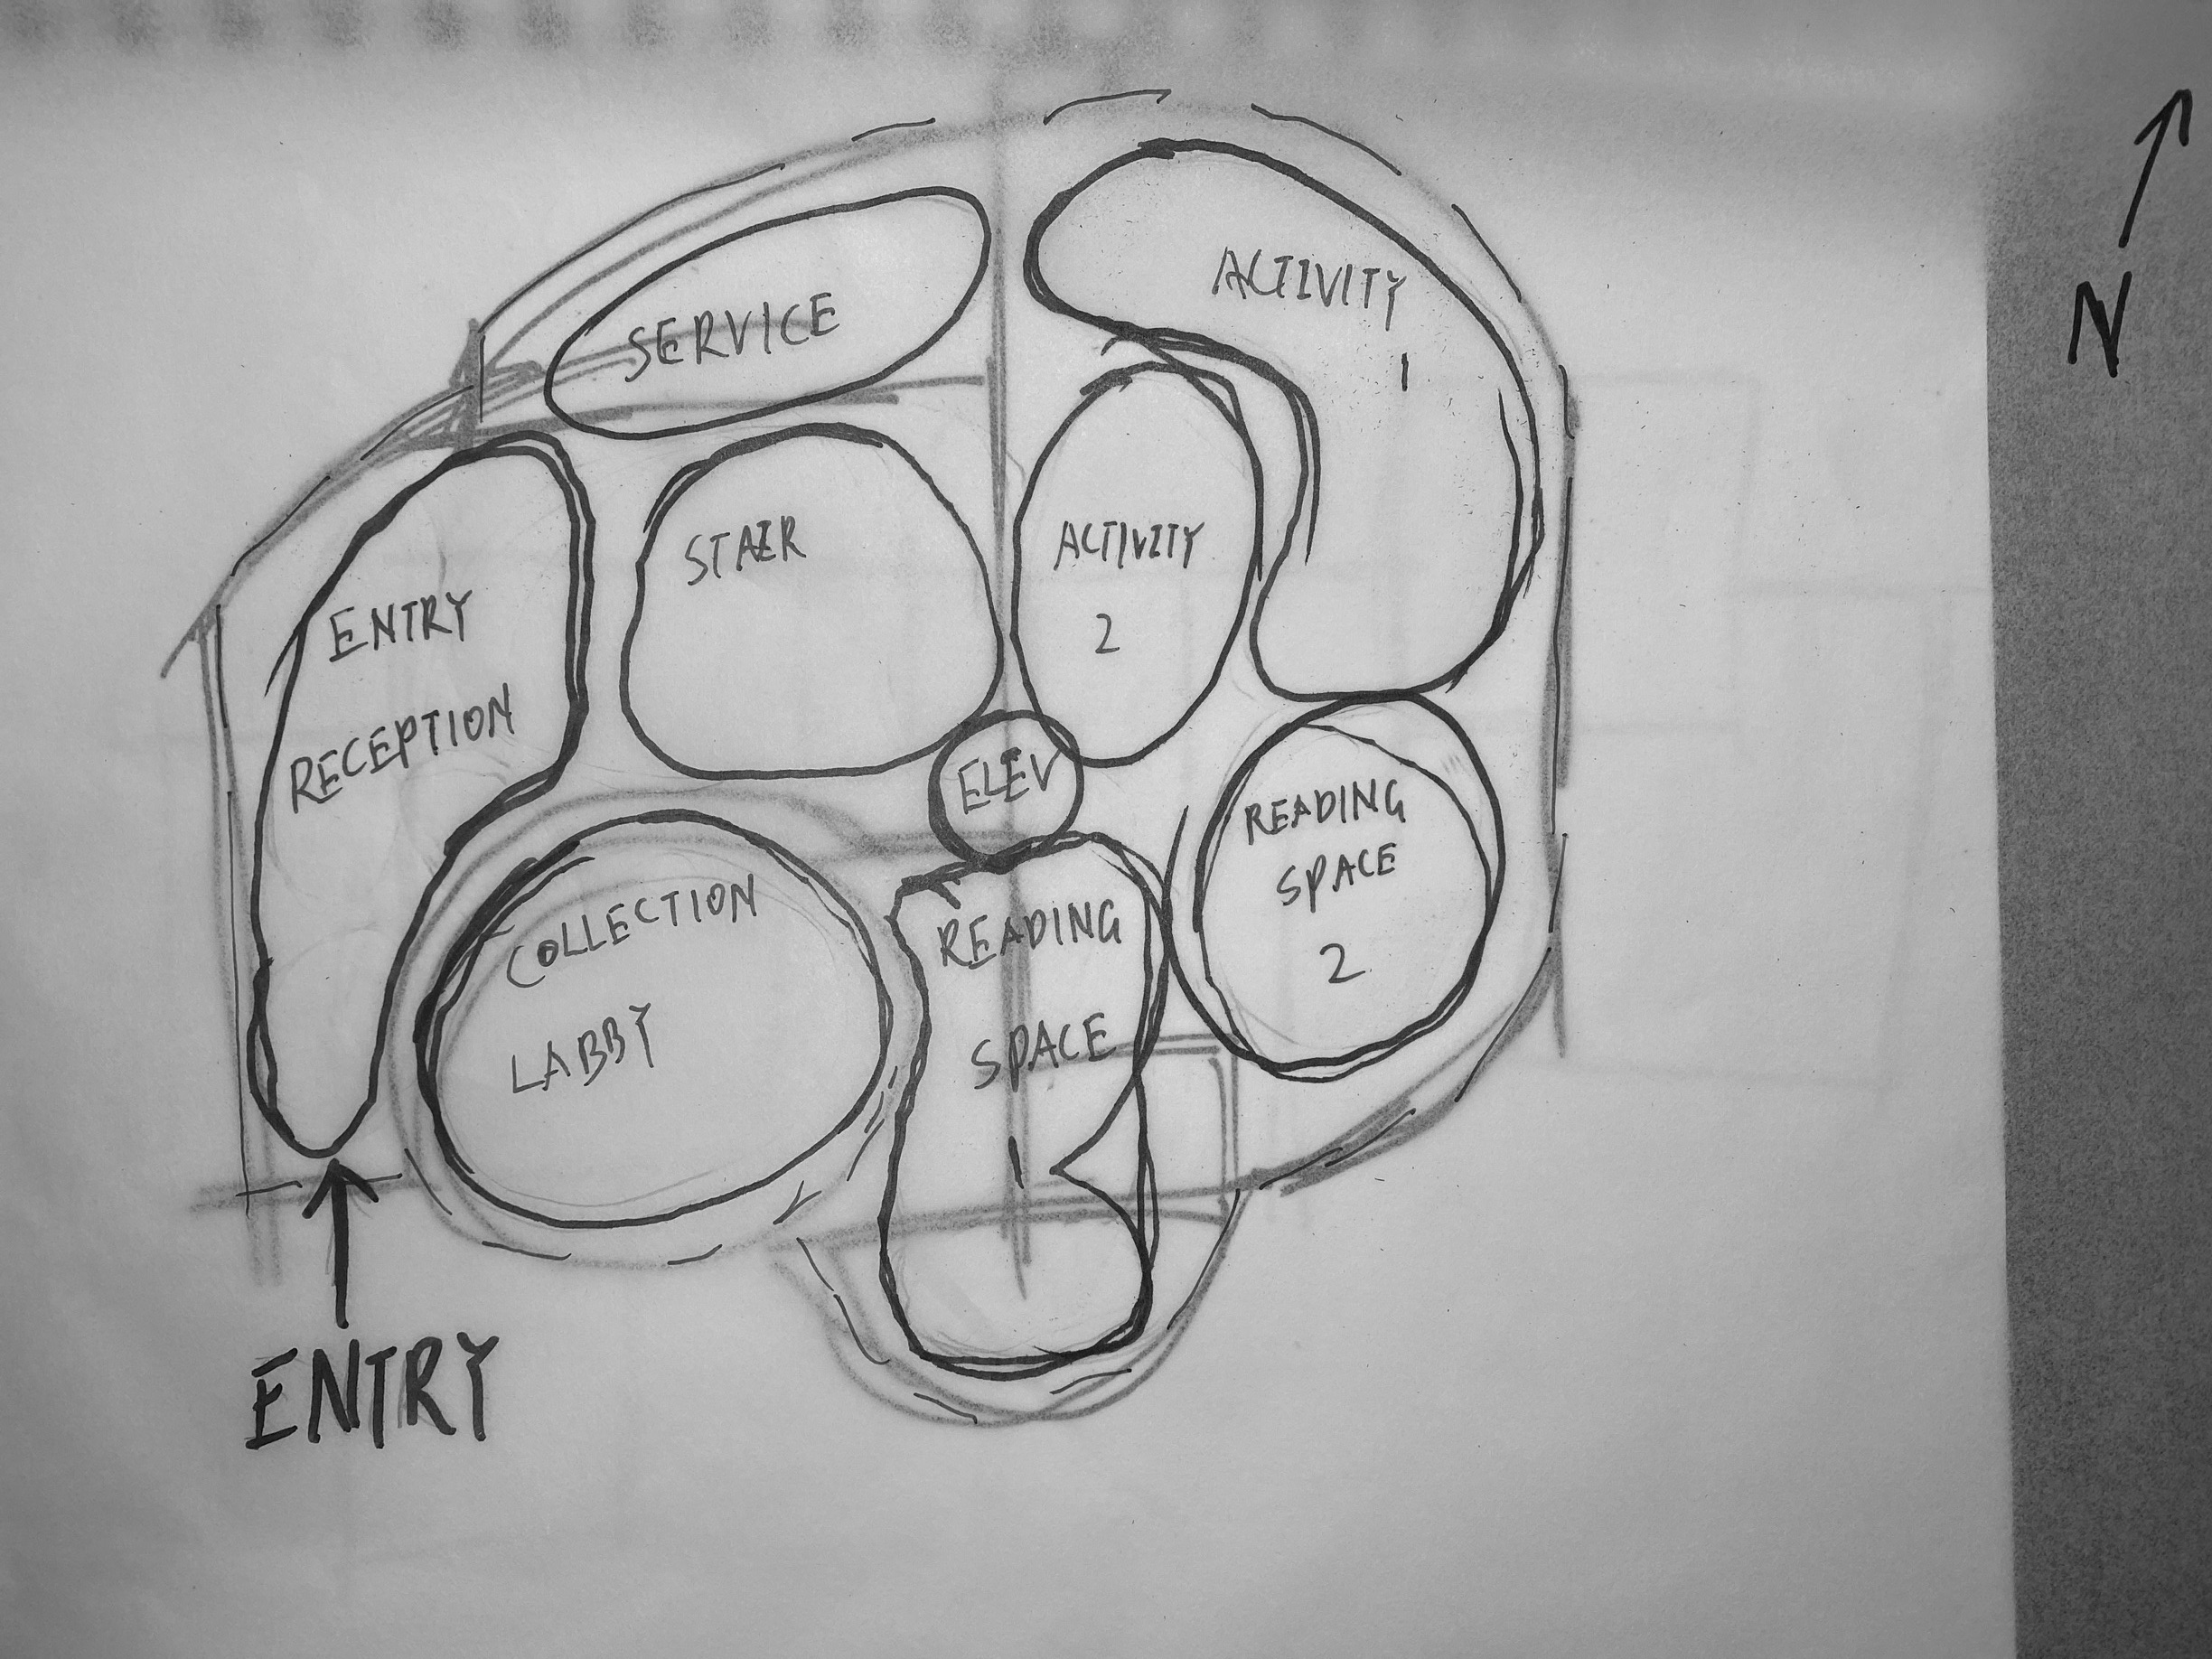 N
SERVICE
ACTIVITY
1
STAIR
ACTIVITY
2
ENTRY
RECEPTION
ELEV
READING
SPACE
2
COLLECTION
LABBY
READING
SPACE
1
ENTRY